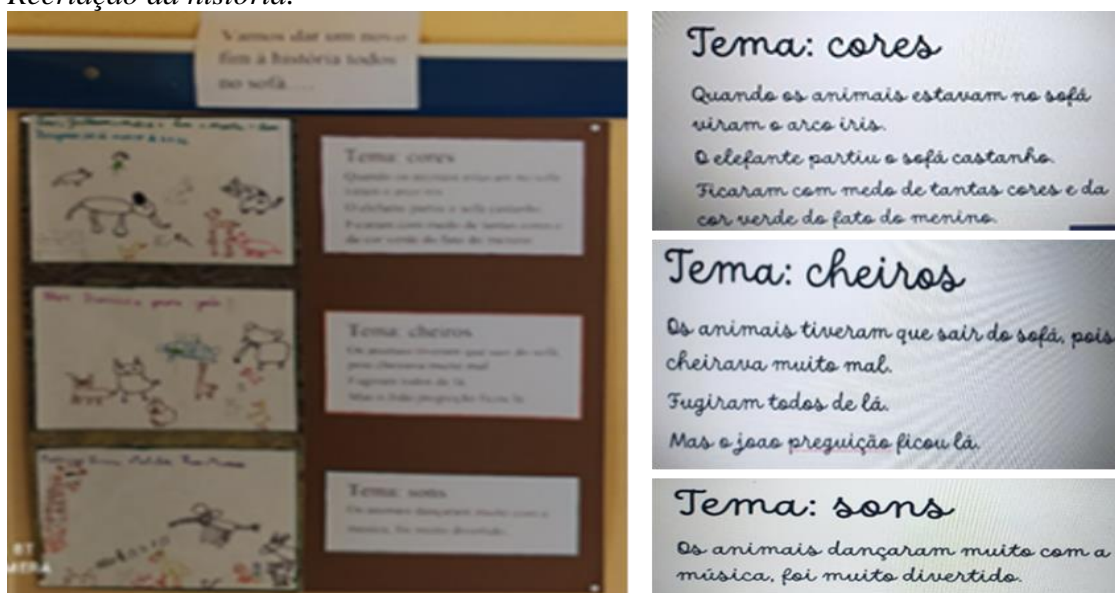 Recriação da história:
Vamos dar um novo
fim à história todos
no sofá....
Tema: cores
Quando os animais estavam no sofá
viram o arco iris.
O elefante partiu o sofá castanho.
Ficaram com medo de tantas cores e da
cor verde do fato do menino.
Tema: cheiros
Os animais tiveram que sair do sofá,
pois cheirava muito mal.
Fugiram todos de lá.
Mas o João preguição ficou lá.
Tema: sons
Os animais dançaram muito com a
música, foi muito divertido.
Tema: cores
Quando os animais estavam no sofá
viram o arco iris.
O elefante partiu o sofá castanho.
Ficaram com medo de tantas cores e da
cor verde do fato do menino.
Tema: cheiros
Os animais tiveram que sair do sofá, pois
cheirava muito mal.
Fugiram todos de lá.
Mas o joao preguição ficou lá.
Tema: sons
Os animais dançaram muito com a
música, foi muito divertido.